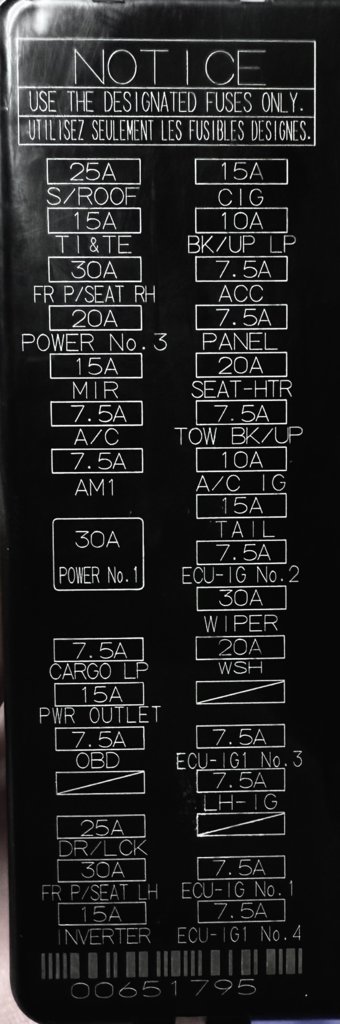 NOTICE
USE THE DESIGNATED FUSES ONLY.
UTILISEZ SEULEMENT LES FUSIBLES DESIGNES.
25A
S/ROOF
15A
TI&TE
30A
FR P/SEAT RH
20A
POWER No.3
15A
MIR
7.5A
A/C
7.5A
AM1
30A
POWER No.1
7.5A
CARGO LP
15A
PWR OUTLET
7.5A
OBD
25A
DR/LCK
30A
FR P/SEAT LH
15A
INVERTER
15A
CIG
10A
BK/UP LP
7.5A
ACC
7.5A
PANEL
20A
SEAT-HTR
7.5A
TOW BK/UP
10A
A/C IG
15A
TAIL
7.5A
ECU-IG No.2
30A
WIPER
20A
WSH
7.5A
ECU-IG1 No.3
7.5A
LH-IG
7.5A
ECU-IG No.1
7.5A
ECU-IG1 No.4
00651795